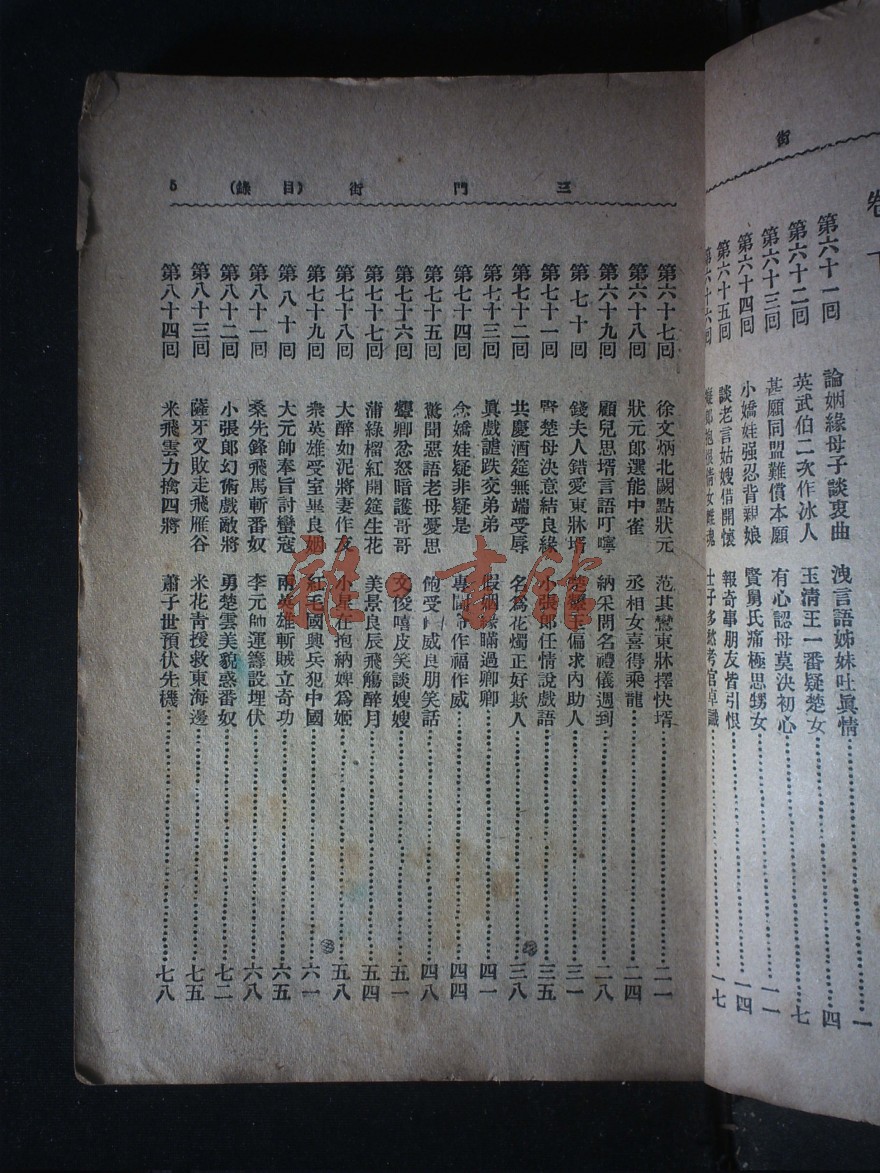 街
卷
第六十一回 論姻緣母子談衷曲 洩言語姊妹吐眞情 一
第六十二回 英武伯二次作冰人 玉清王一番疑楚女 四
第六十三回 甚願同盟難償本願 有心認母莫決初心 七
第六十四回 小嬌娃强忍背親娘 賢舅氏痛極思甥女 一一
第六十五回 談老言姑嫂借開懷 報奇事朋友皆引恨 一四
第六十六回 士子多愁考官卓識 一七
三門街 (目錄) 5
第六十七回 徐文炳北闕點狀元 范其鸞東牀擇快壻 二一
第六十八回 狀元郎選能中雀 丞相女喜得乘龍 二四
第六十九回 顧兒思壻言語叮嚀 納采問名禮儀週到 二八
第七十回 錢夫人錯愛東牀壻 楚瓊玉偏求內助人 三一
第七十一回 晉楚母決意結良緣 小張郎任情說戲語 三五
第七十二回 共慶酒筵無端受辱 名爲花燭正好欺人 三八
第七十三回 眞戲謔跌交弟弟 假姻緣瞞過卿卿 四一
第七十四回 念嬌娃疑非疑是 專閫作福作威 四四
第七十五回 驚聞惡語老母憂思 飽受威良朋笑話 四八
第七十六回 顰卿忿怒暗護哥哥 文俊嘻皮笑談嫂嫂 五一
第七十七回 蒲綠榴紅開筵生花 美景良辰飛觴醉月 五四
第七十八回 大醉如泥將妻作友 小星在抱納婢爲姬 五八
第七十九回 衆英雄受室畢良姻 紅毛國興兵犯中國 六一
第八十回 大元帥奉旨討蠻寇 兩英雄斬賊立奇功 六五
第八十一回 桑先鋒飛馬斬番奴 李元帥運籌設埋伏 六八
第八十二回 小張郎幻術戲敵將 勇楚雲美貌惑番奴 七二
第八十三回 薩牙叉敗走飛雁谷 米花青援救東海邊 七五
第八十四回 米飛雲力擒四將 蕭子世預伏先機 七八
書館